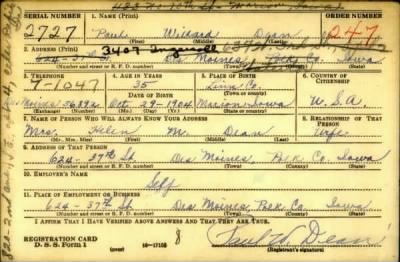 1122 No. 10th St. Marion Iowa
SERIAL NUMBER 1. NAME (Print) ORDER NUMBER
2727 Paul Willard Dean 247
(First) (Middle) (Last)
2. ADDRESS (Print) 3407 Ingersoll
624-37th St. Des Moines Polk Co. Iowa
(Number and street or R. F. D. number) (Town) (County) (State)
3. TELEPHONE 4. AGE IN YEARS 5. PLACE OF BIRTH 6. COUNTRY OF CITIZENSHIP
7-1047 35 Linn Co.
DATE OF BIRTH (Town or county)
Des Moines Oct. 29-1904 Marion-Iowa U.S.A.
(Exchange) (Number) (Mo.) (Day) (Yr.) (State or country)
7. NAME OF PERSON WHO WILL ALWAYS KNOW YOUR ADDRESS 8. RELATIONSHIP OF THAT PERSON
Mrs. Helen M. Dean Wife
(Mr., Mrs., Miss) (First) (Middle) (Last)
9. ADDRESS OF THAT PERSON
624-37th St Des Moines Polk Co. Iowa
(Number and street or R. F. D. number) (Town) (County) (State)
10. EMPLOYER'S NAME
Self
11. PLACE OF EMPLOYMENT OR BUSINESS
624-37th St Des Moines, Polk Co. Iowa
(Number and street or R. F. D. number) (Town) (County) (State)
I AFFIRM THAT I HAVE VERIFIED ABOVE ANSWERS AND THAT THEY ARE TRUE.
REGISTRATION CARD
D. S. S. Form 1 16-17105 8 Paul W. Dean
(Registrant's signature)